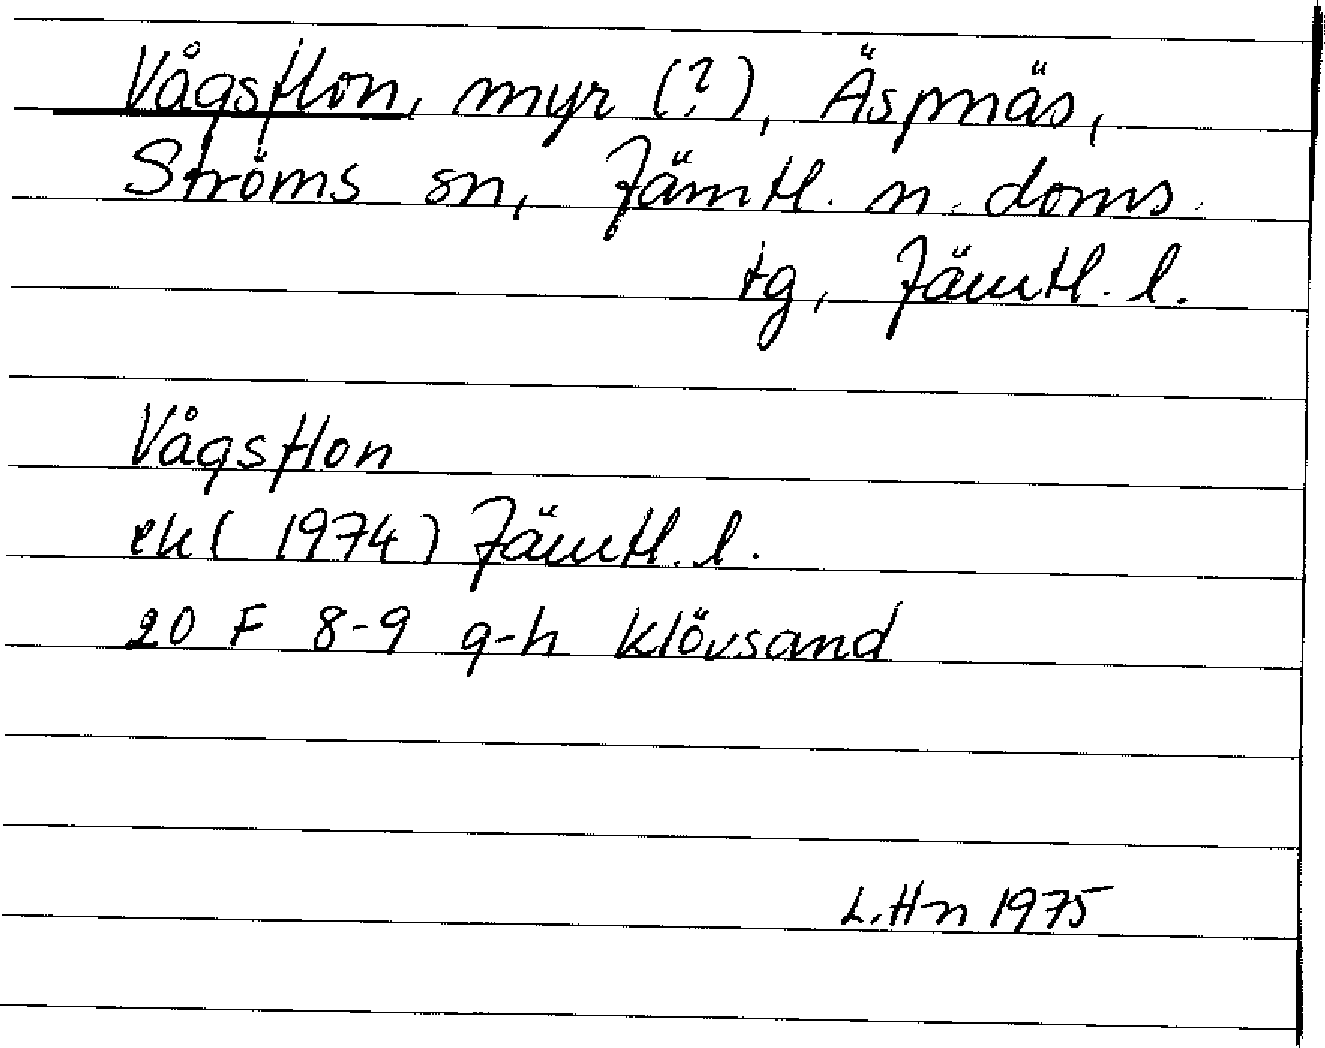 Vågsflon, myr (?), Äspnäs,
Ströms sn, Jämtl. n. doms.
tg, Jämtl. l.
Vågsflon
ek (1974) Jämtl. l.
20 F 8-9 g-h Klövsand
L. Hn 1975